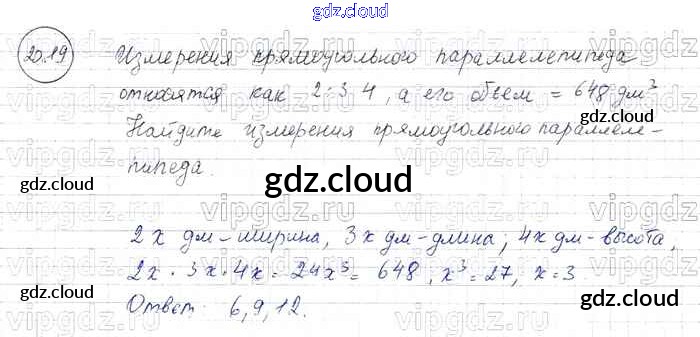 gdz.cloud
20.19 Измерения прямоугольного параллелепипеда
относятся как 2:3:4, а его объем = 648 дм³
Найдите измерения прямоугольного параллеле-
пипеда.
gdz.cloud gdz.cloud
gdz.cloud
2x дм - ширина, 3x дм - длина, 4x дм - высота,
2x · 3x · 4x = 24x³ = 648, x³ = 27, x = 3
Ответ: 6, 9, 12.
gdz.cloud gdz.cloud
gdz.cloud